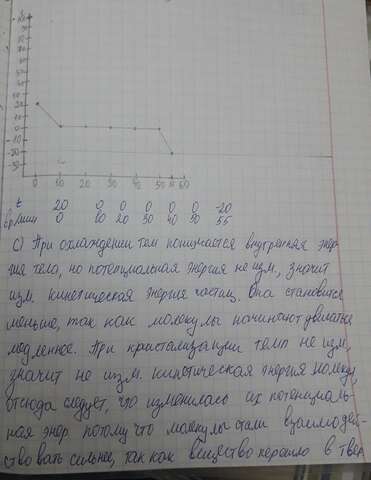 20
10
0
10
20
30
0 10 20 30 40 50 60
t 20 0 0 0 0 0 -20
0 10 20 30 40 50 55
с) При охлаждении тем понижается внутренняя энер
гия тело, но потенциальная энергия не изм., значит
изм. кинетическая энергия частиц. Она становится
меньше, так как молекулы начинают двигаться
медленное. При кристализации темп не изм,
значит не изм. кинетическая энергия молекул,
отсюда следует, что изменилась их потенциаль-
ная энер потому что молекулы стали взаимодей-
ствовать сильнее, так как вещество перешло в твер